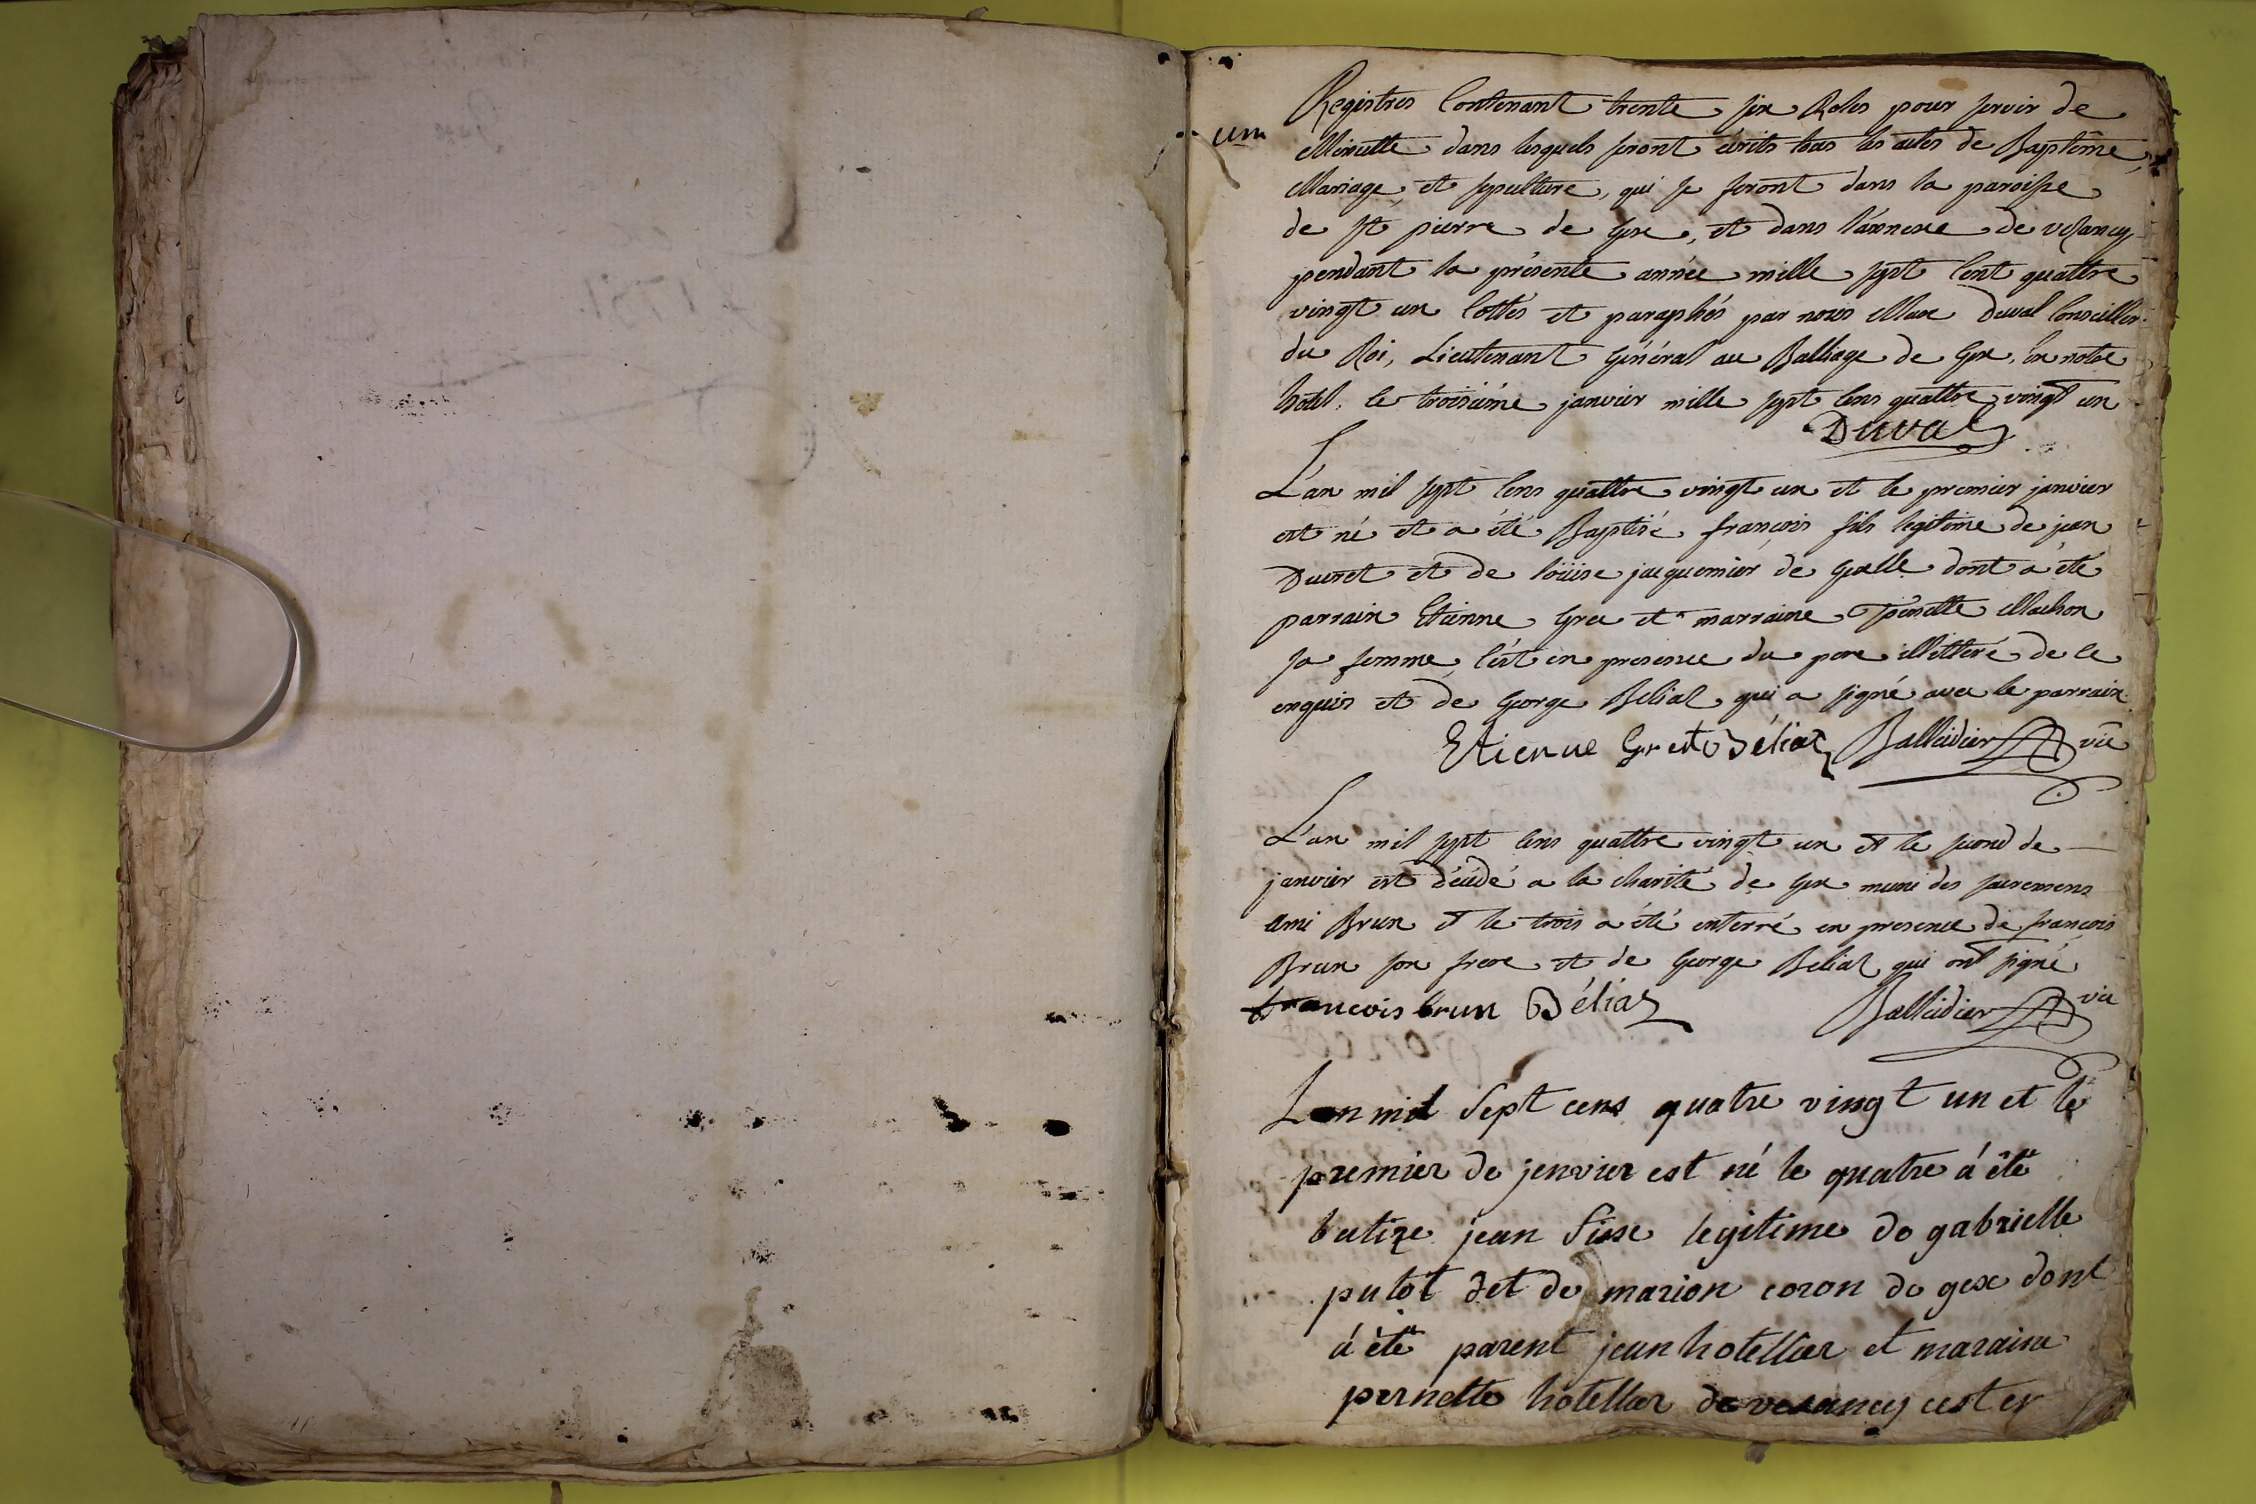 um
Registres Contenant trente six Roles pour servir de
Minutte dans lesquels seront écrits tous les actes de Baptême,
Mariage, et sepulture, qui se feront dans la paroisse
de St pierre de Gex, et dans l'annexe de vesancy
pendant la présente année mille sept Cent quattre
vingt un Cottés et paraphés par nous Duval Conseiller
du Roi, Lieutenant Général au Balliage de Gex, En notre
hôtel, le troisiéme janvier mille sept Cens quattre vingt un
Duval
L'an mil sept Cens quattre vingt un et le premier janvier
est né et a été Baptisé françois fils legitime de jean
Ducret et de loüise jacquemier de dont a été
parrain Etienne Gret et marraine pernette Machon
sa femme, C'est en presence du pere illitteré de ce
enquis et de George Béliaz qui a signé avec le parrain.
Etienne Gret Béliaz Balleidier vic
L'an mil sept Cens quattre vingt un et le second de
janvier est décédé a la charité de Gex muni des sacremens
Ami Brun et le trois a été enterré en presence de françois
Brun son frere et de George Béliaz qui ont signé
francois brun Béliaz Balleidier vic
Lan mil Sept cens quatre vingt un et le
premier de jenvier est né le quatre á été
batize jean fisx legitime de gabrielle
putot det de marion coran de gex dont
á été parent jean hotellier et maraine
pernette hotellier de vesancy cest en